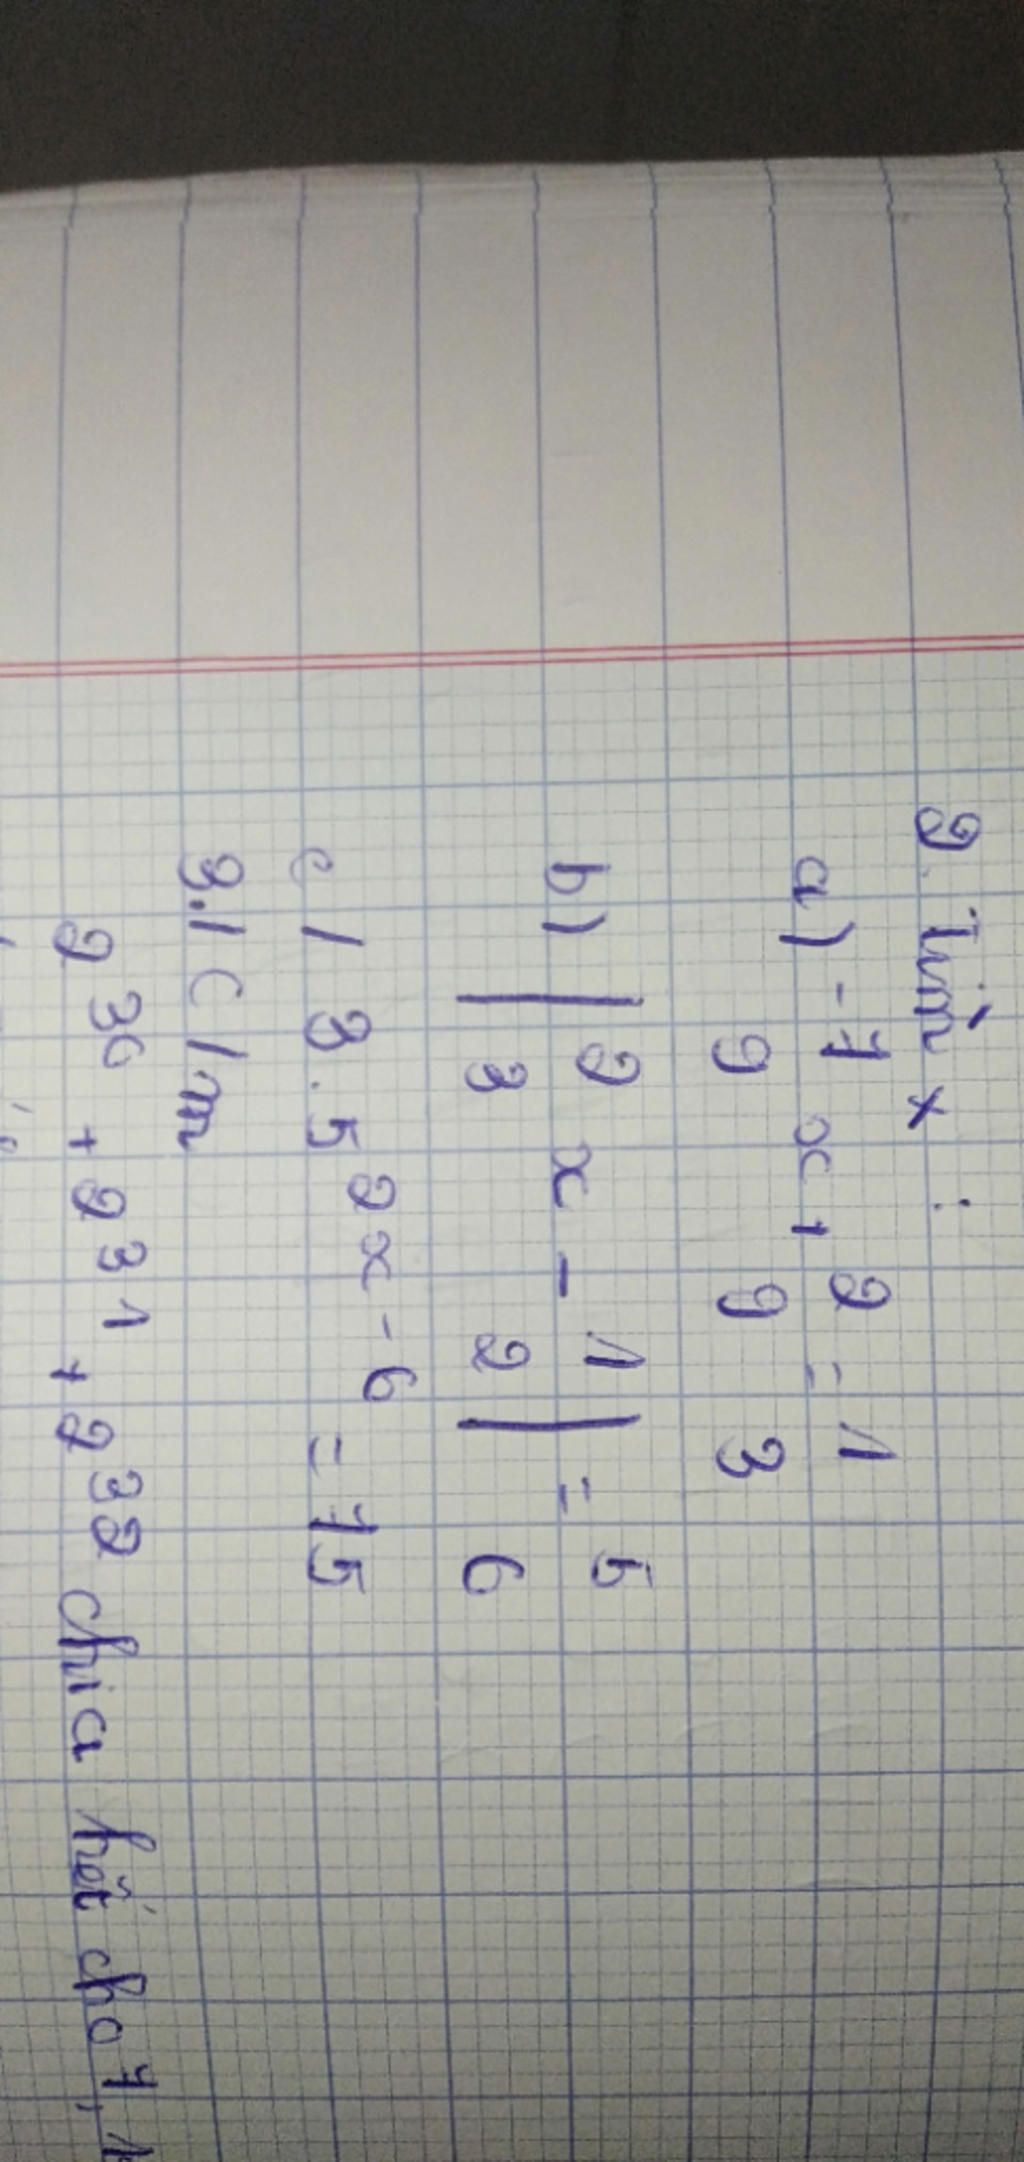 2. Tìm x :
a) -7/2 x + 2/9 = 1/3
b) | 2/3 x - 1/2 | = 5/6
c/ 3.5^2x-6 = 75
3./ C/m
2^30 + 2^31 + 2^32 chia hết cho 7,